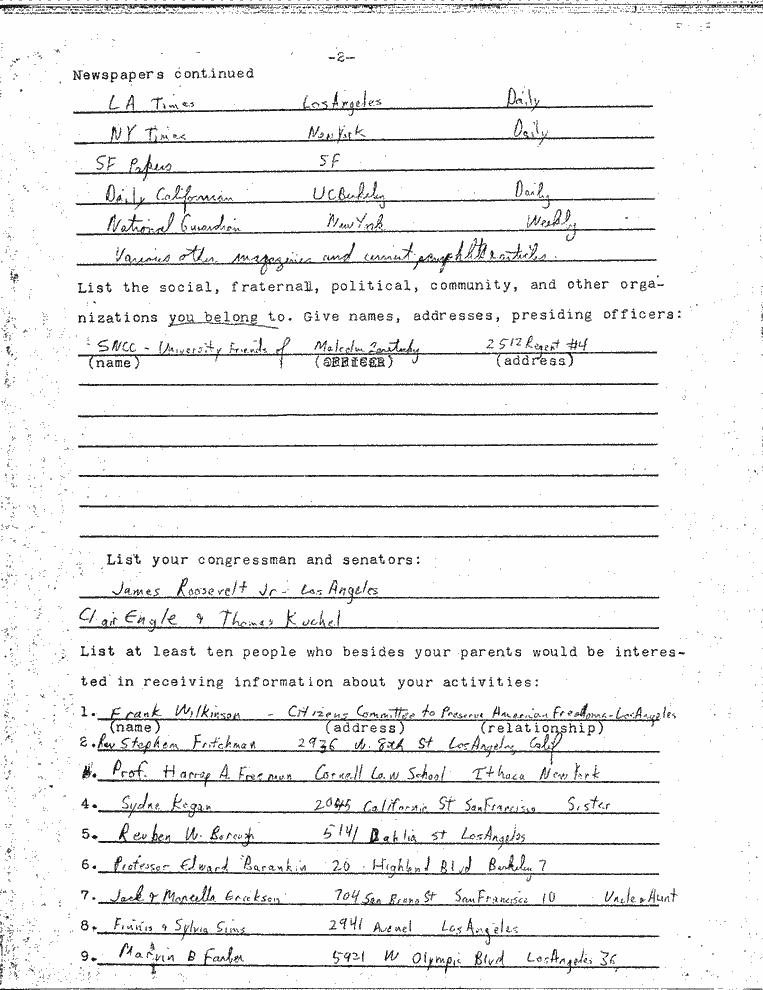 -2-
Newspapers continued
LA Times Los Angeles Daily
NY Times New York Daily
SF Papers SF
Daily Californian UC Berkeley Daily
National Guardian New York Weekly
Various other magazines and current pamphlets articles.
List the social, fraternal, political, community, and other orga-
nizations you belong to. Give names, addresses, presiding officers:
SNCC - University Friends of Malcolm 2512 Regent #4
(name) (OFFICER) (address)
List your congressman and senators:
James Roosevelt Jr - Los Angeles
Clair Engle & Thomas Kuchel
List at least ten people who besides your parents would be interes-
ted in receiving information about your activities:
1. Frank Wilkinson - Citizens Committee to Preserve American Freedoms - Los Angeles
(name) (address) (relationship)
2. Rev Stephen Fritchman 2936 W. 8th St Los Angeles, Calif
3. Prof. Harrop A. Freeman Cornell Law School Ithaca New York
4. Sydne Kegan 2045 California St San Francisco Sister
5. Reuben W. Borough 5141 Dahlia St Los Angeles
6. Professor Edward Barankin 20 Highland Blvd Berkeley 7
7. Jack & Marcella Erickson 704 San Bruno St San Francisco 10 Uncle & Aunt
8. Finnis & Sylvia Sims 2941 Avenel Los Angeles
9. Marvin B Farber 5921 W Olympic Blvd Los Angeles 36